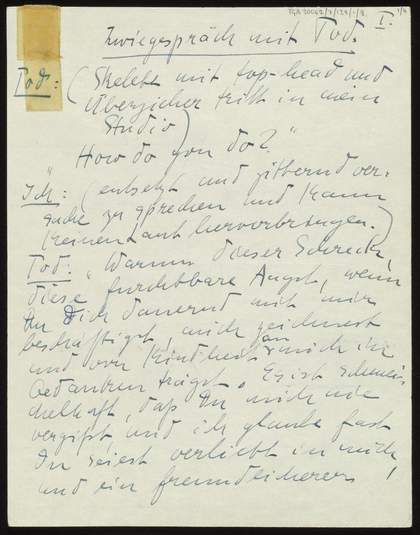 TGA 20052/2/124/1/2
1/4
I.
Zwiegespräch mit Tod.
Tod: (Skelett mit top-head und
Überzieher tritt in mein
Studio)
How do you do?"
Ich: (entsetzt und zitternd ver-
suche zu sprechen und kann
keinen Laut hervorbringen.)
Tod: "Warum dieser Schrecken,
diese furchtbare Angst, wenn
Du Dich dauernd mit mir
beschäftigst, mich zeichnest
und von Kindheit an mich in
Gedanken trägst. Es ist schmei-
chelhaft, daß Du mich nie
vergißt, und ich glaube fast
Du seiest verliebt in mich,
und ein freundlicheres